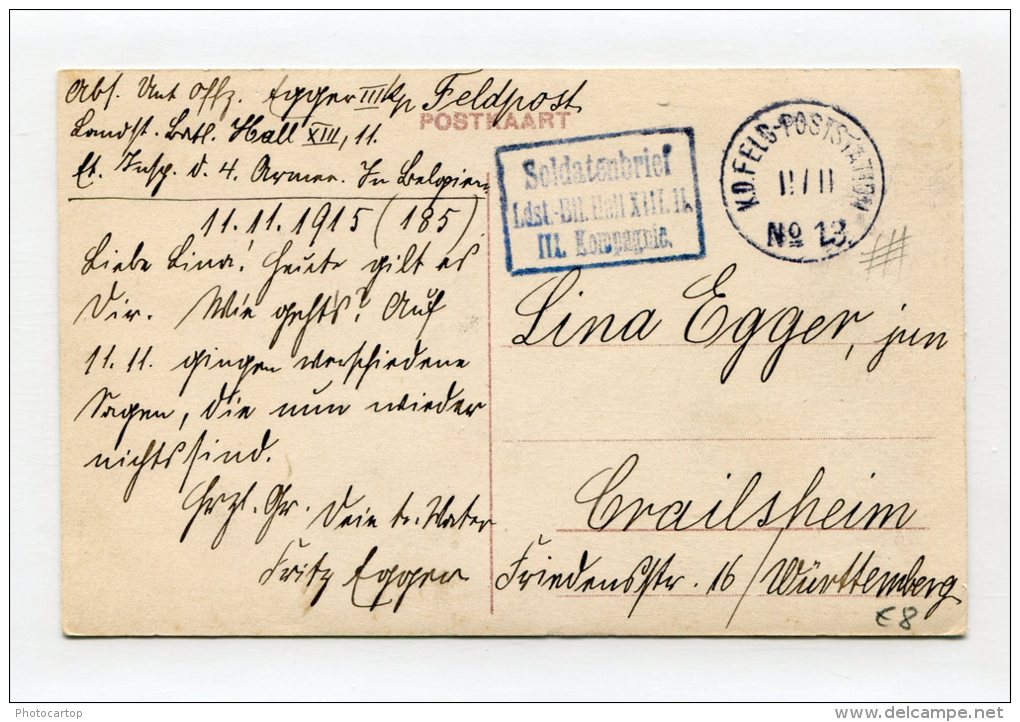 Abs. Unt Offz. Egger III/Kp Feldpost
Landst. Batl. Hall XIII, 11.
Et. Insp. d. 4. Armee. In Belgien
11.11.1915 (185)
Liebe Lina! Heute gilt es
Dir. Wie gehts? Auf
11.11. gingen verschiedene
Sagen, die nun wieder
nichts sind.
Hrzl. Gr. Dein tr. Vater
Fritz Egger
POSTKAART
Soldatenbrief
Ldst.-Btl. Hall XIII. 11.
III. Kompagnie.
K.D. FELD-POSTSTATION
11/11
No 13.
Lina Egger, jun
Crailsheim
Friedensstr. 16/Württemberg
€8
Photocartop
www.delcampe.net